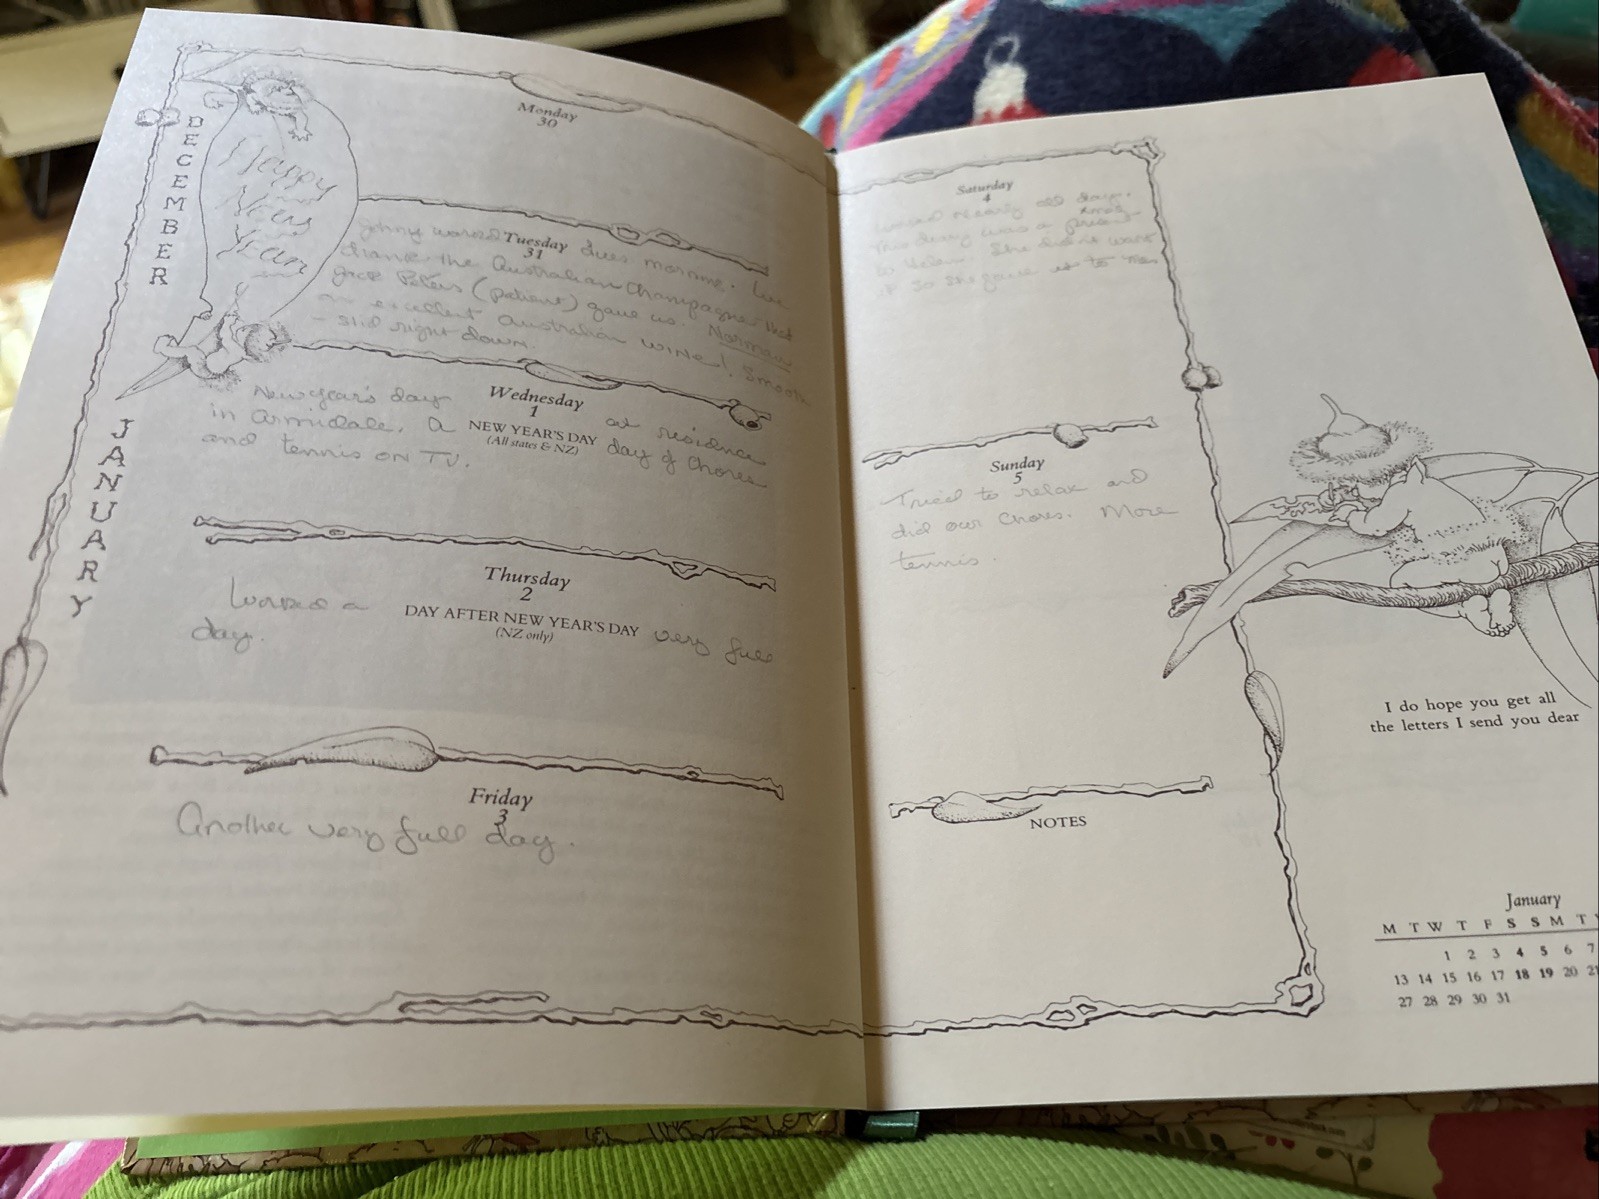 DECEMBER
Happy
New
Year
JANUARY
Monday
30
Tuesday
31
Johny worked this morning. We
drank the Australian Champagne that
Jack Peters (patient) gave us. Norman
an excellent Australian WINE! Smooth
- slid right down.
Wednesday
1
NEW YEAR'S DAY
(All states & NZ)
New Year's day at residence
in Armidale. A day of chores
and tennis ON TV.
Thursday
2
DAY AFTER NEW YEAR'S DAY
(NZ only)
Worked a very full
day.
Friday
3
Another very full day.
Saturday
4
Worked nearly all day.
This diary was a Xmas present
to Helen. She didn't want
it so she gave it to me.
Sunday
5
Tried to relax and
did our chores. More
tennis.
NOTES
I do hope you get all
the letters I send you dear
January
M T W T F S S M T
1 2 3 4 5 6 7
13 14 15 16 17 18 19 20
27 28 29 30 31